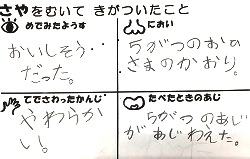 さやをむいて きがついたこと
めでみたようす
おいしそう・・
だった。
におい
5がつのおひ
さまのかおり。
てでさわったかんじ
やわらか
い。
たべたときのあじ
5がつ のあじ
があじわえた。